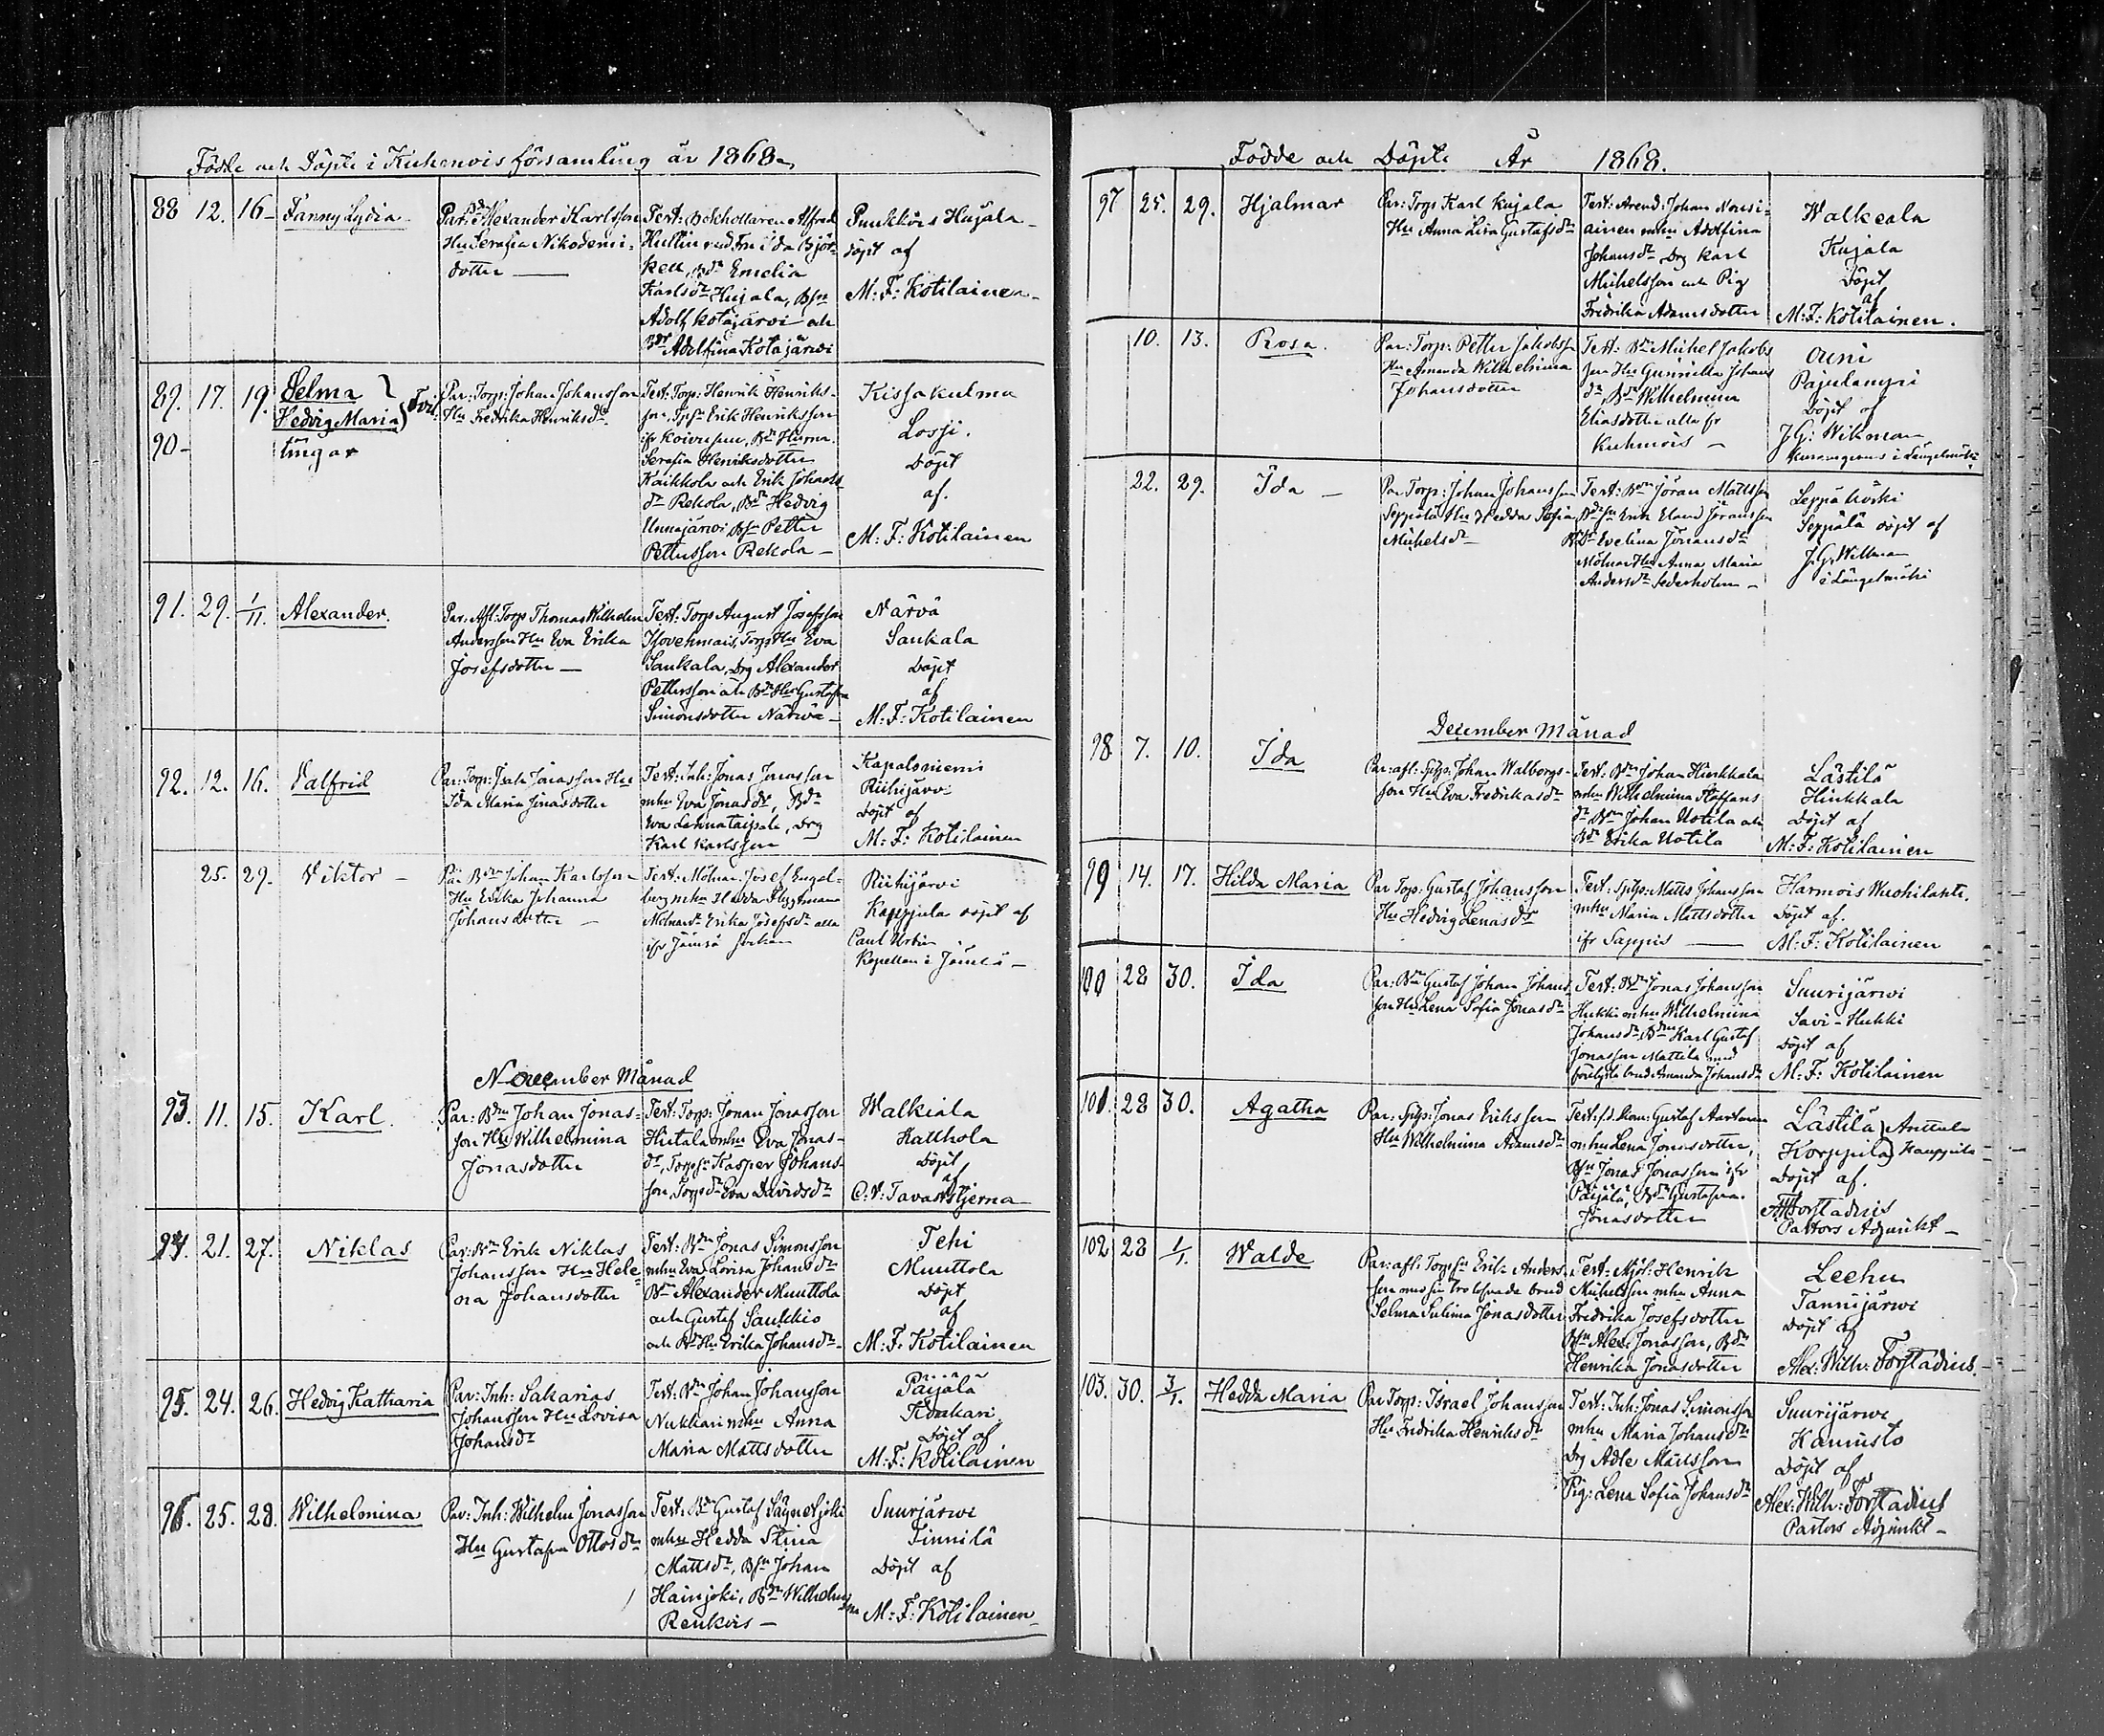 Födde och Döpte i Kuhmois församling år 1868.
88 12. 16 Fanny Lydia
Par: Alexander Karlsson
Hu Serafia Nikodemi-
dotter
Test: Bokhållaren Alfred
Hullin med Frn Ida Björ-
kell, Bdr Emelia
Karlsdr Hujala, Bsn
Adolf Kotajärvi och
Bdr Adolfina Kotajärvi
Puukkois Hujala
döpt af
M: F: Kotilainen
89. 17. 19. Selma
90 Hedvig Maria Tvil-
lingar
Par: Torp: Johan Johansson
Hu Fredrika Henriksdr
Test: Torp: Henrik Henriks-
son, Erik Henriksson
ifr Bdr
Serafia Henriksdotter
Kaikkola och Erik Johans
dr Rekola, Bdr Hedvig
Unnajärvi Bsn Petter
Pettersson Rekola
Kissakulma
Lossi.
Döpt
af.
M: F: Kotilainen
91. 29. 1/11. Alexander.
Par: Afl: Torp Thomas Wilhelm
Andersson Hu Eva Erika
Josefsdotter
Test: Torp August Josefsson
Torps Hu Eva
Saukala, Drg Alexander
Pettersson och Bdr Hu Gustafva
Simonsdotter Närvä
Närvä
Saukala
Döpt
af
M: F: Kotilainen
92. 12. 16. Valfrid
Par: Torp: Isak Jonasson Hu
Ida Maria Jonasdotter
Test: Inh: Jonas Jonasson
mhu Eva Jonasdr, Bdr
Eva Lehmataipale, Drg
Karl Karlsson
Kapalsniemi
Riihijärvi
Döpt af
M: F: Kotilainen
25. 29. Viktor
Par Bdn Johan Karlsson
Hu Erika Johanna
Johansdotter
Test: Mölnar: Josef Engel-
berg mhu Hedda Flygtman
Mölnardr Erika Josefsdr alla
ifr Jämsä
Riihijärvi
Kappula döpt af
Paul
Kapellan i Jämsä
November Månad
93. 11. 15. Karl.
Par: Bdn Johan Jonas-
son Hu Wilhelmina
Jonasdotter
Test: Torp: Jonas Jonasson
Hietala mhu Eva Jonas-
dr, Torpsn Kasper Johans-
son, Torpdr Eva Davidsdr
Walkiala
Katthola
Döpt
af
C: V: Tavaststjerna
94. 21. 27. Niklas
Par: Bdn Erik Niklas
Johansson Hu Hele-
na Johansdotter
Test: Bdn Jonas Simonsson
mhu Eva Lovisa Johansdr
Bdn Alexander Muuttola
och Gustaf Saukkio
och Bd Hu Erika Johansdr
Tehi
Muuttola
Döpt
af
M: F: Kotilainen
95. 24. 26. Hedvig Katharia
Par: Inh: Sakarias
Johansson Hu Lovisa
Johansdr
Test: Bdn Johan Johansson
Nukkari mhu Anna
Maria Mattsdotter
Päijälä
Koukari
Döpt af
M: F: Kotilainen
96. 25. 28. Wilhelmina
Par: Inh: Wilhelm Jonasson
Hu Gustafva Ottosdr
Test: Bdn Gustaf Säynetjoki
mhu Hedda Stina
Mattsdr, Bsn Johan
Hainjoki, Bdn Wilhelm
Renkois
Suurjärwi
Finnilä
Döpt af
M: F: Kotilainen
Födde och Döpte År 1868.
97 25. 29. Hjalmar
Par: Torp Karl Kujala
Hu Anna Lisa Gustafsdr
Test: Arend: Johan Nousi-
ainen mhu Adolfina
Johansdr Drg Karl
Michelsson och Pig
Fredrika Adamsdotter
Walkeala
Kujala
Döpt
af
M: F: Kotilainen.
10. 13. Rosa.
Par: Torp: Petter Jakobss
Hu Amanda Wilhelmina
Johansdotter
Test: Bdn Michel Jakobs
son Hu Gunnilla Johans
dr, Bdr Wilhelmina
Eliasdotter alla fr
Kuhmois
Ouni
Pajulampi
Döpt af
J. G: Wikman
i Längelmäki
22. 29. Ida
Par Torp: Johan Johansson
Seppälä Hu Hedda Sofia
Michelsdr
Test: Bdn Jöran Mattss
Bdsn Erik Eland Jöransson
Bdr Evelina Jöransdr
Mölnar Hu Anna Maria
Andersdr Sederholm
Leppäkoski
Seppälä döpt af
J. G. Wikman
i Längelmäki
December Månad
98 7. 10. Ida
Par: afl: Sptp: Johan Walborgs-
son Hu Eva Fredrikasdr
Test: Bdn Johan Hinkkala
mhu Wilhelmina Staffans
dr Bdn Johan Uotila och
Bdr Erika Uotila
Lästilä
Hinkkala
Döpt af
M: F: Kotilainen
99 14. 17. Hilda Maria
Par Torp: Gustaf Johansson
Hu Hedvig Lenasdr
Test: Sptp: Matts Johansson
mhu Maria Mattsdotter
ifr Sappis
Harmois Wuohilahti.
Döpt af.
M: F: Kotilainen
100 28 30. Ida
Par: Bdn Gustaf Johan Johans
son Hu Lena Sofia Jonasdr
Test: Bdn Jonas Johansson
Hukki mhu Wilhelmina
Johansdr, Bdn Karl Gustaf
Jonasson Mattila med
förelysta brud Amanda Johansdr
Suurijärwi
Savi-Hukki
Döpt af
M: F: Kotilainen
101. 28 30. Agatha
Par: Sptp: Jonas Eriksson
Hu Wilhelmina Adamsdr
Test: Gustaf
mhu Lena Jonasdotter,
Bsn Jonas Jonasson ifr
Päijälä, Bdr Gustafva
Jonasdotter
Lästilä Anttula
Korppila Kauppila
Döpt af.
Forstadius
Pastors Adjunkt
102 28 1/1. Walde
Par: afl: Torpsn Erik Anders-
son med sin trolofvade brud
Selma Sulina Jonasdotter
Test: Mjöl: Henrik
Michelsson mhu Anna
Fredrika Josefsdotter
Bsn Alex Jonasson, Bdr
Henrika Jonasdotter
Leehu
Tannijärwi
Döpt af
Alex: Wilh: Forstadius.
103. 30. 3/1. Hedda Maria
Par Torp: Israel Johansson
Hu Fredrika Henriksdr
Test: Inh: Jonas Simonsson
mhu Maria Johansdr
Drg Adle Mattsson
Pig: Lena Sofia Johansdr
Suurijärwi
Kaunisto
Döpt af
Alex: Wilh: Forstadius
Pastors Adjunkt